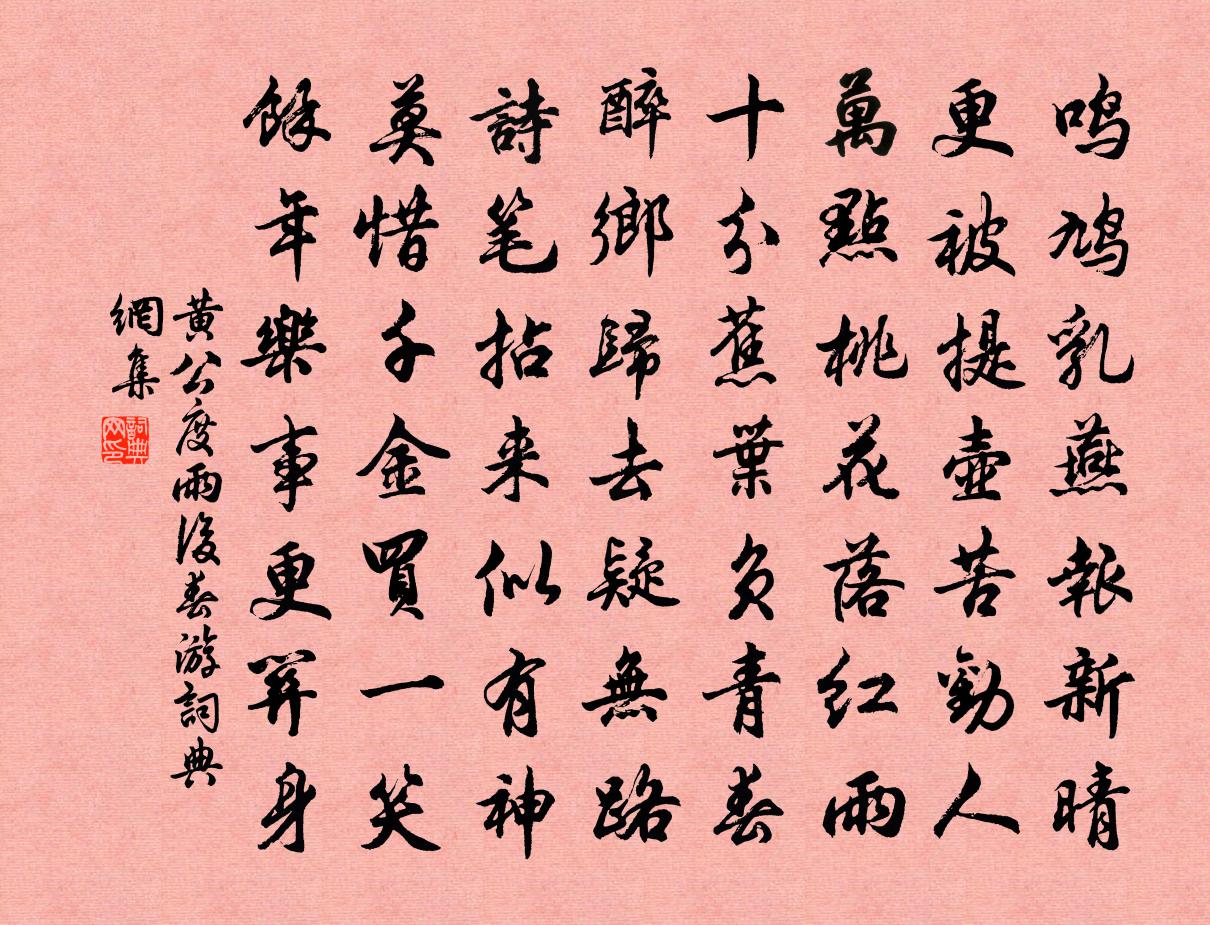 鸣鸠乳燕報新晴
更被提壺苦勸人
萬點桃花落红雨
十分蕉葉負青春
醉鄉歸去疑無路
詩笔拈来似有神
莫惜千金買一笑
餘年樂事更關身
黄公度雨後春游詞典
網集
詞典
网印